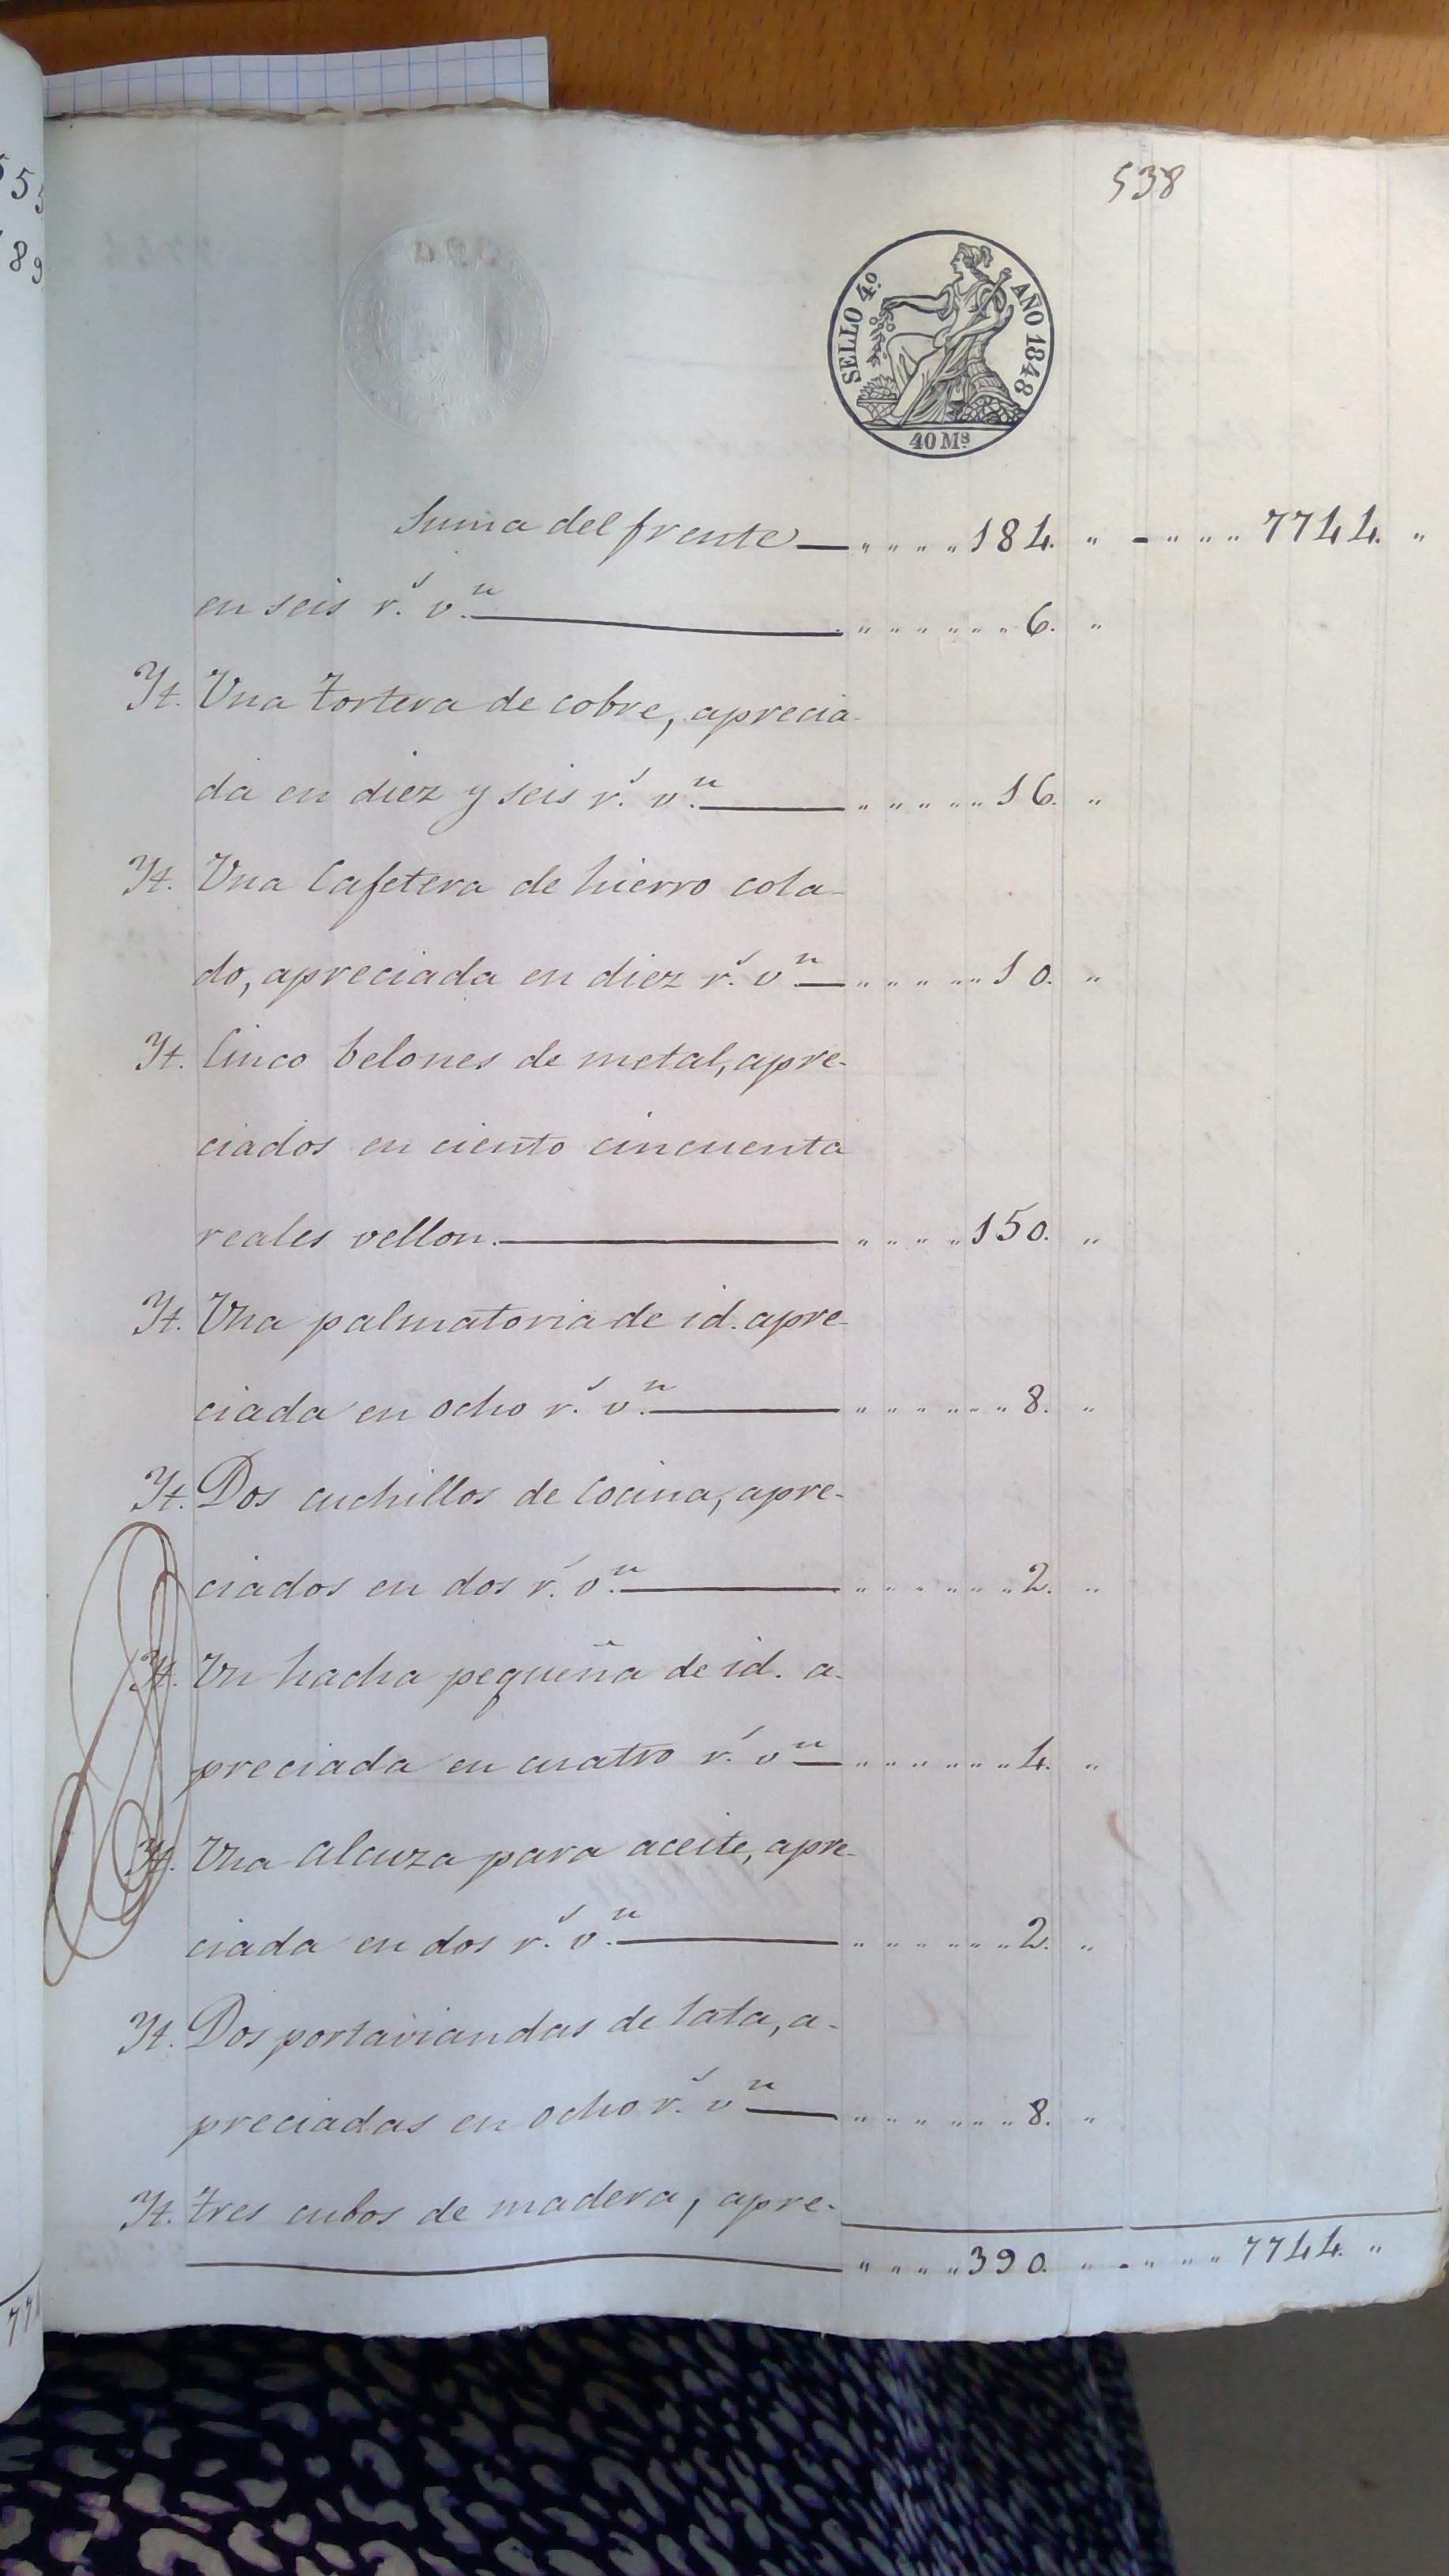 538
SELLO 4º AÑO 1848
40 Mˢ
Suma del frente — " " " " 184. " - " " " " 7744. "
en seis r.ˢ v.ⁿ — " " " " " " " 6. "
Yt. Una tortera de cobre, aprecia-
da en diez y seis r.ˢ v.ⁿ — " " " " " " 16. "
Yt. Una Cafetera de hierro cola-
do, apreciada en diez r.ˢ vⁿ — " " " " " " 10. "
Yt. Cinco belones de metal, apre-
ciados en ciento cincuenta
reales vellon. — " " " " " 150. "
Yt. Una palmatoria de id. apre-
ciada en ocho r.ˢ v.ⁿ — " " " " " " " 8. "
Yt. Dos cuchillos de Cocina, apre-
ciados en dos r.ˢ v.ⁿ — " " " " " " " 2. "
Yt. Un hacha pequeña de id. a-
preciada en cuatro r.ˢ vⁿ — " " " " " " " 4. "
Yt. Una alcuza para aceite, apre-
ciada en dos r.ˢ v.ⁿ — " " " " " " " 2. "
Yt. Dos portaviandas de lata, a-
preciadas en ocho r.ˢ vⁿ — " " " " " " " 8. "
Yt. tres cubos de madera, apre-
— " " " " 390. " - " " " " 7744. "